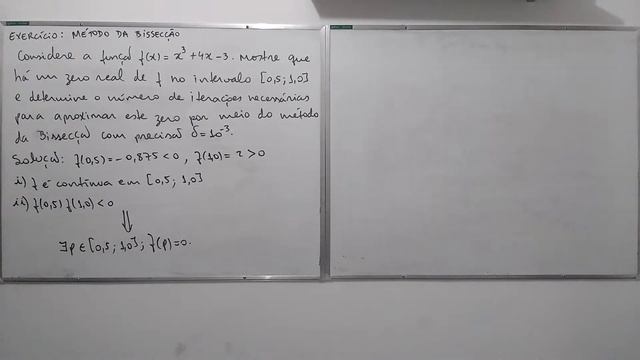 EXERCÍCIO: MÉTODO DA BISSECÇÃO
Considere a funçã f(x) = x³ + 4x - 3. Mostre que
há um zero real de f no intervalo [0,5; 1,0]
e determine o número de iterações necessárias
para aproximar este zero por meio do método
da Bissecçã com precisã δ = 10⁻³.
Soluçã: f(0,5) = -0,875 < 0 , f(1,0) = 2 > 0
i) f é contínua em [0,5; 1,0]
ii) f(0,5) f(1,0) < 0
⇓
∃ p ∈ [0,5; 1,0]; f(p) = 0.